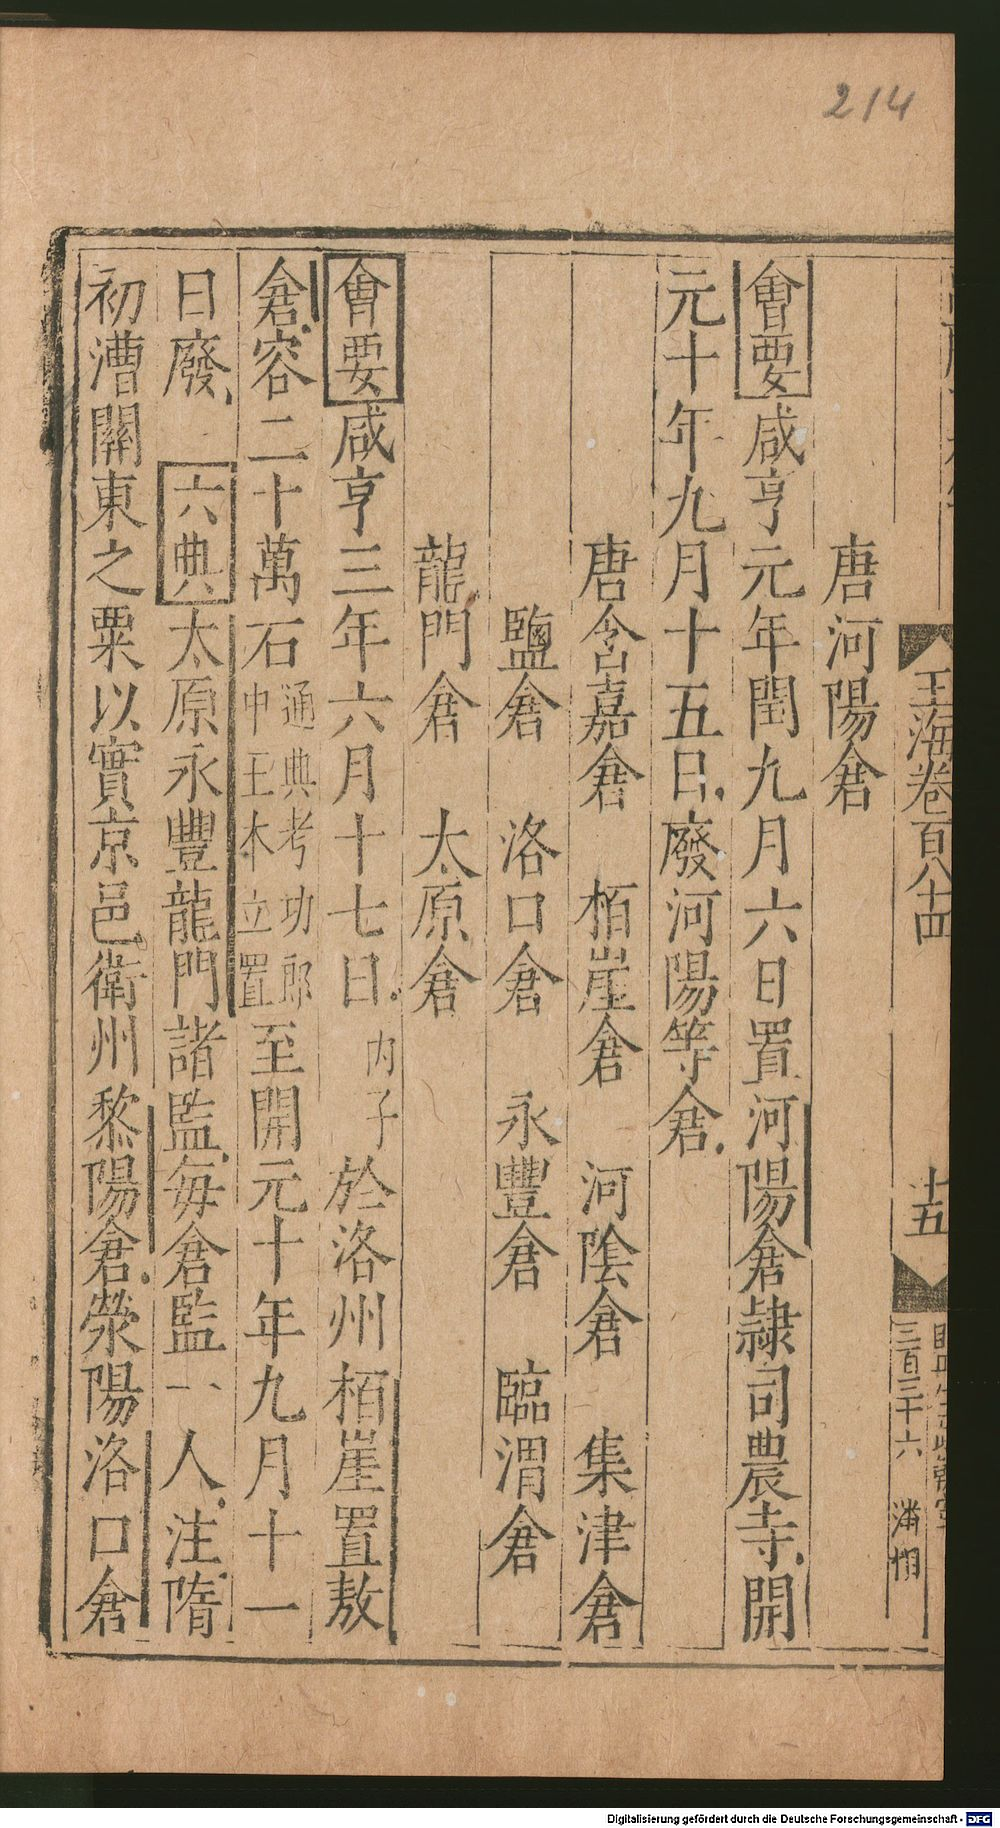 214
玉海卷百八十四
十五
三百三十六
唐河陽倉
會要咸亨元年閏九月六日置河陽倉隷司農寺開
元十年九月十五日廢河陽等倉
唐含嘉倉 栢崖倉 河隂倉 集津倉
鹽倉 洛口倉 永豐倉 臨渭倉
龍門倉 太原倉
會要咸亨三年六月十七日丙子於洛州栢崖置敖
倉容二十萬石通典考功郎中王本立置至開元十年九月十一
日廢 六典太原永豐龍門諸監每倉監一人注隋
初漕關東之粟以實京邑衛州黎陽倉滎陽洛口倉
Digitalisierung gefördert durch die Deutsche Forschungsgemeinschaft - DFG